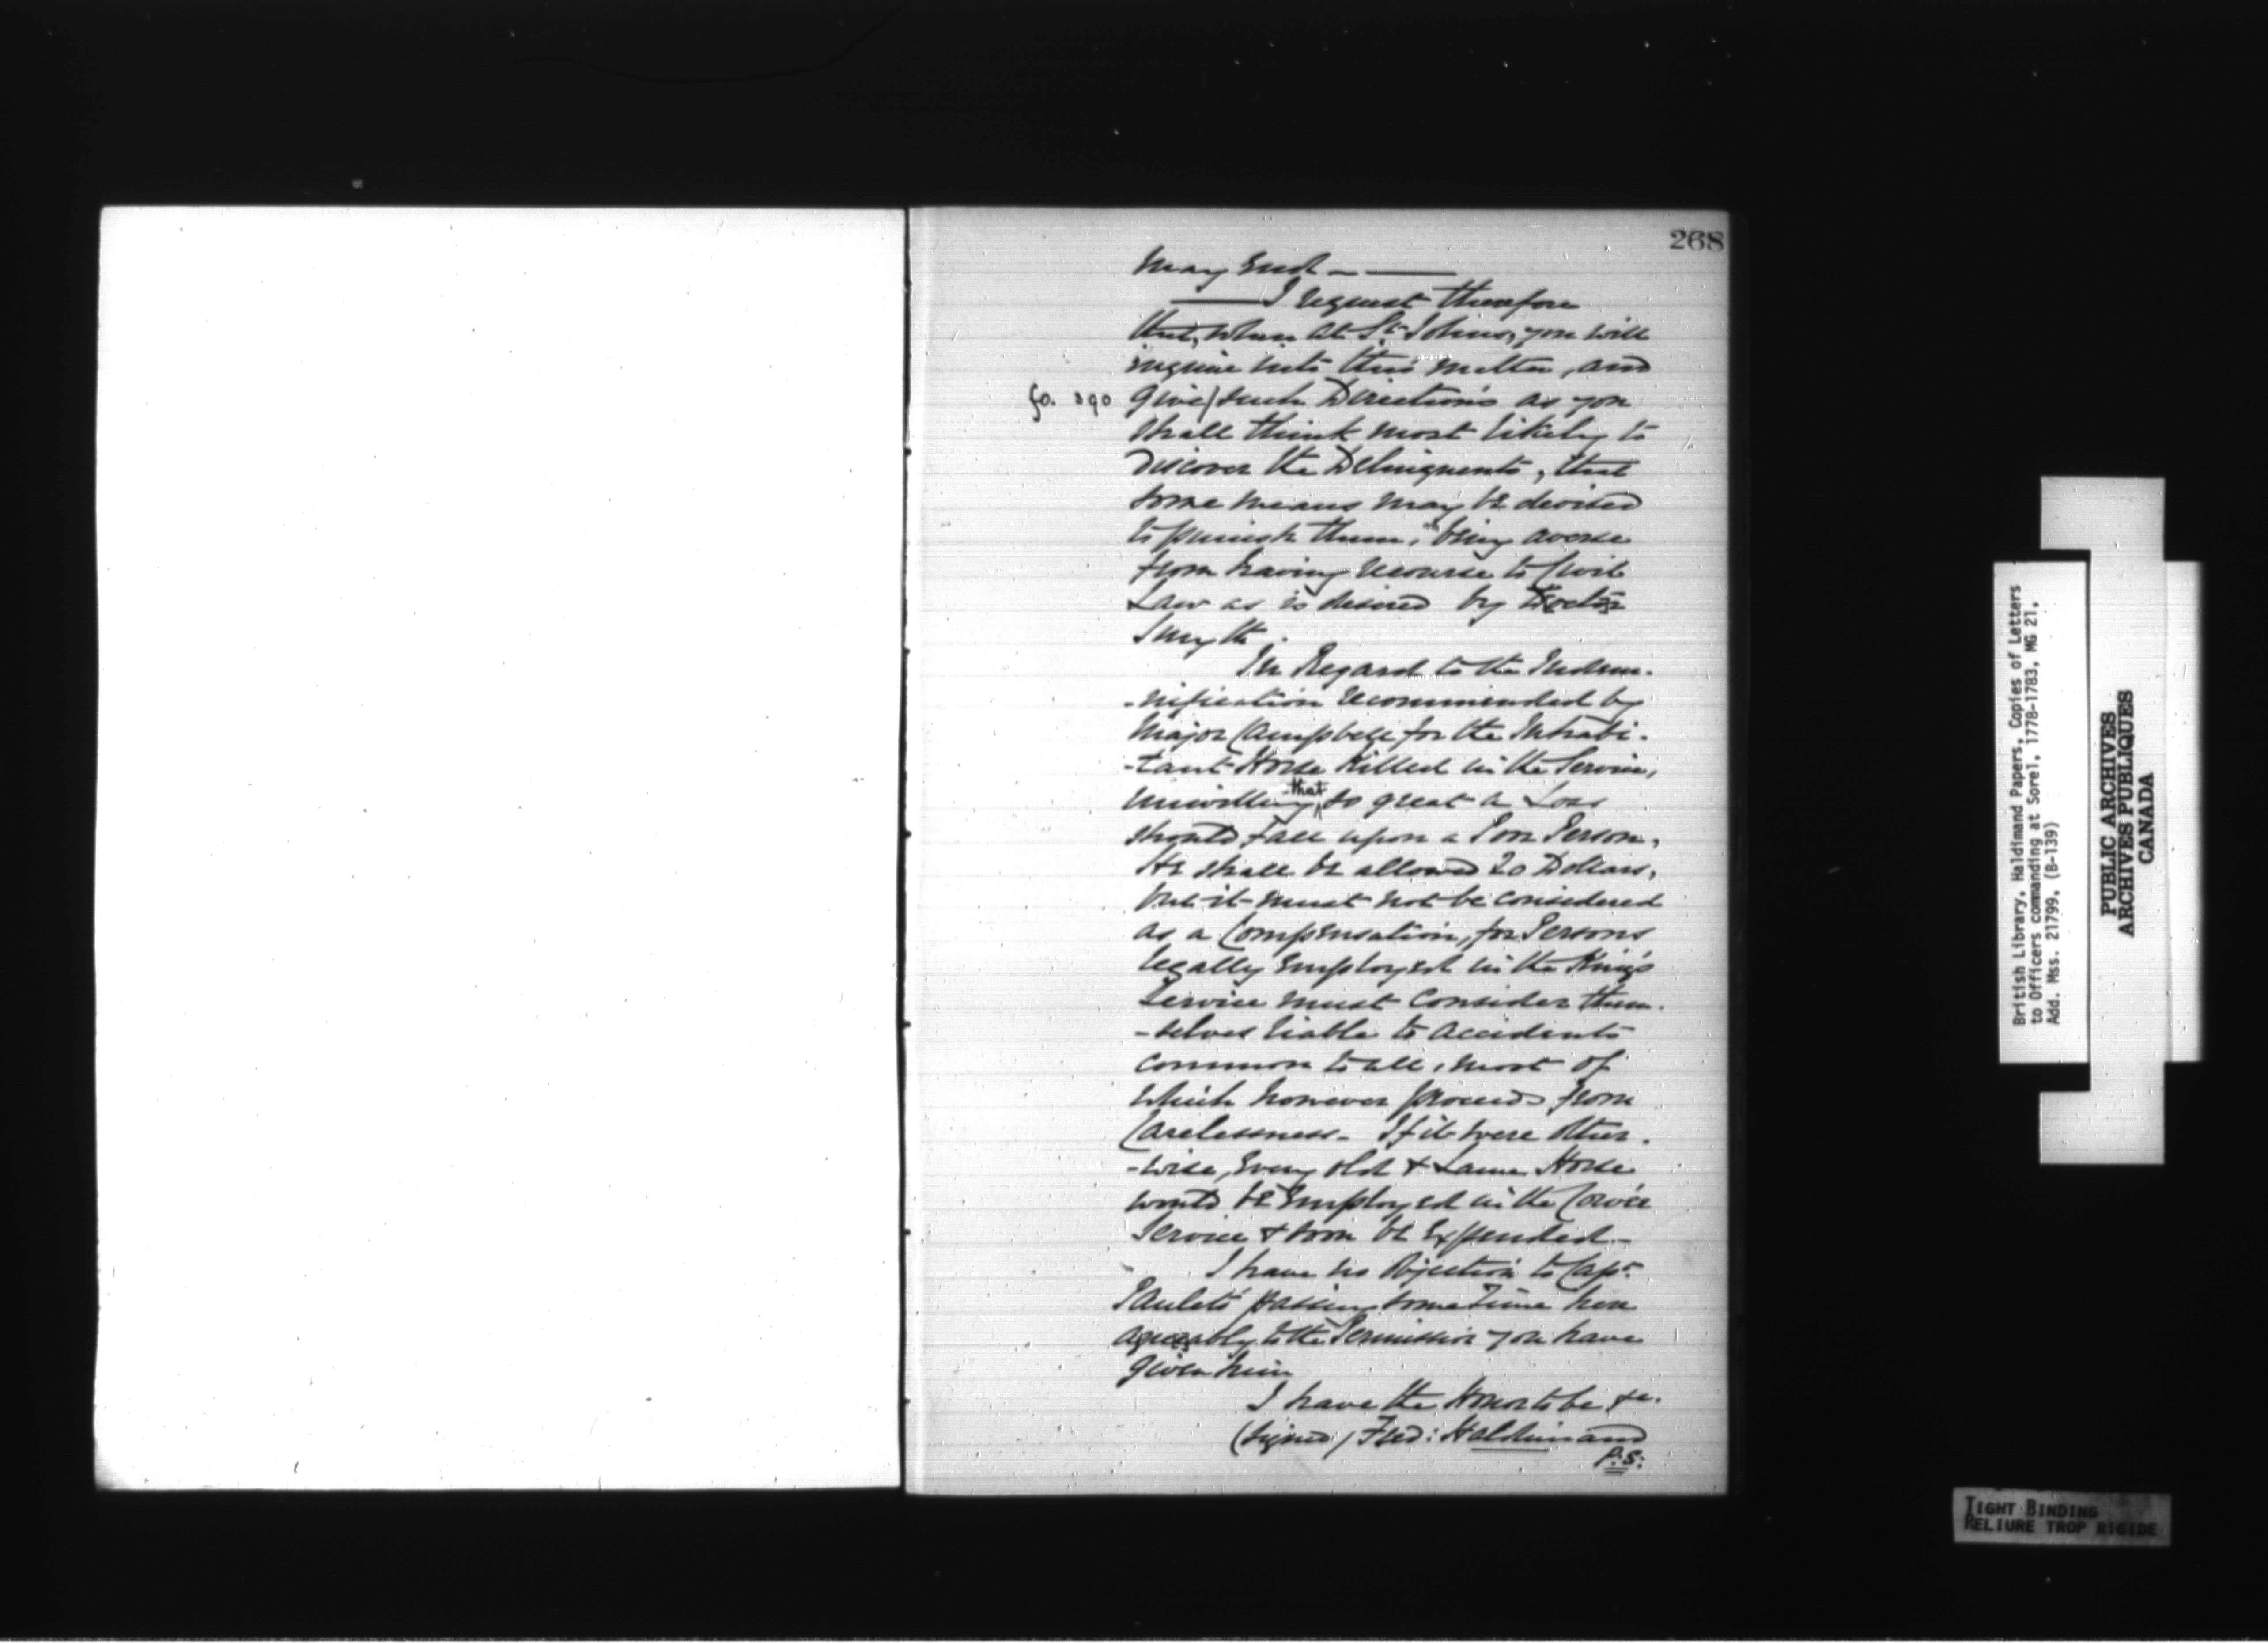 268
may End - ——
—— I request therefore
that, when at St. Johns, you will
inquire into this matter, and
fo. 390 give/such Directions as you
shall think most likely to
discover the Delinquents, that
some means may be devised
to punish them, being averse
from having recourse to Civil
Law as is desired by Doctor
Smyth.
In Regard to the Indem-
-nification recommended by
Major Campbell for the Inhabi-
-tant Horse Killed in the Service,
unwilling that so great a Loss
should fall upon a Poor Person,
He shall be allowed 20 Dollars,
but it must not be considered
as a Compensation, for Persons
legally Employed in the King's
Service must Consider them-
-selves liable to accidents
common to all, most of
which however proceeds from
Carelessness - If it were other-
-wise, Every old & Lame Horse
would be Employed in the
Service & soon be Expended -
I have no Objection to Capt.
passing some Time here
agreeably to the Permission you have
given him
I have the Honor to be &c.
(signed) Fred: Haldimand
P:S:
British Library, Haldimand Papers, Copies of Letters
to Officers commanding at Sorel, 1778-1783, MG 21,
Add. Mss. 21799, (B-139)
PUBLIC ARCHIVES
ARCHIVES PUBLIQUES
CANADA
TIGHT BINDING
RELIURE TROP RIGIDE